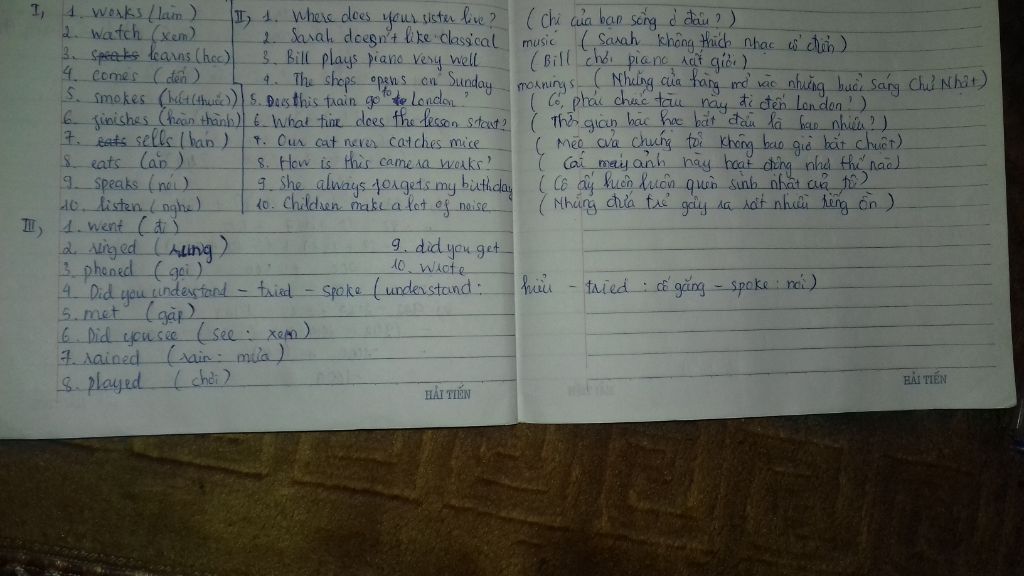 I, 1. works (làm)
2. watch (xem)
3. speaks learns (học)
4. comes (đến)
5. smokes (hút (thuốc))
6. finishes (hoàn thành)
7. eats sells (bán)
8. eats (ăn)
9. speaks (nói)
10. listen (nghe)
II, 1. Where does your sister live? (Chị của bạn sống ở đâu?)
2. Sarah doesn't like classical music (Sarah không thích nhạc cổ điển)
3. Bill plays piano very well (Bill chơi piano rất giỏi)
4. The shops opens on Sunday mornings (Những cửa hàng mở vào những buổi sáng Chủ Nhật)
5. Does this train go to London? (Có phải chuyến tàu này đi đến London?)
6. What time does the lesson start? (Thời gian bài học bắt đầu là bao nhiêu?)
7. Our cat never catches mice (Mèo của chúng tôi không bao giờ bắt chuột)
8. How is this camera works? (Cái máy ảnh này hoạt động như thế nào)
9. She always forgets my birthday (Cô ấy luôn luôn quên sinh nhật của tôi)
10. Children make a lot of noise (Những đứa trẻ gây ra rất nhiều tiếng ồn)
III, 1. went (đi)
2. ringed (rung)
3. phoned (gọi)
4. Did you understand - tried - spoke (understand: hiểu - tried: cố gắng - spoke: nói)
5. met (gặp)
6. Did you see (see: xem)
7. rained (rain: mưa)
8. played (chơi)
9. did you get
10. wrote
HẢI TIẾN
HẢI TIẾN